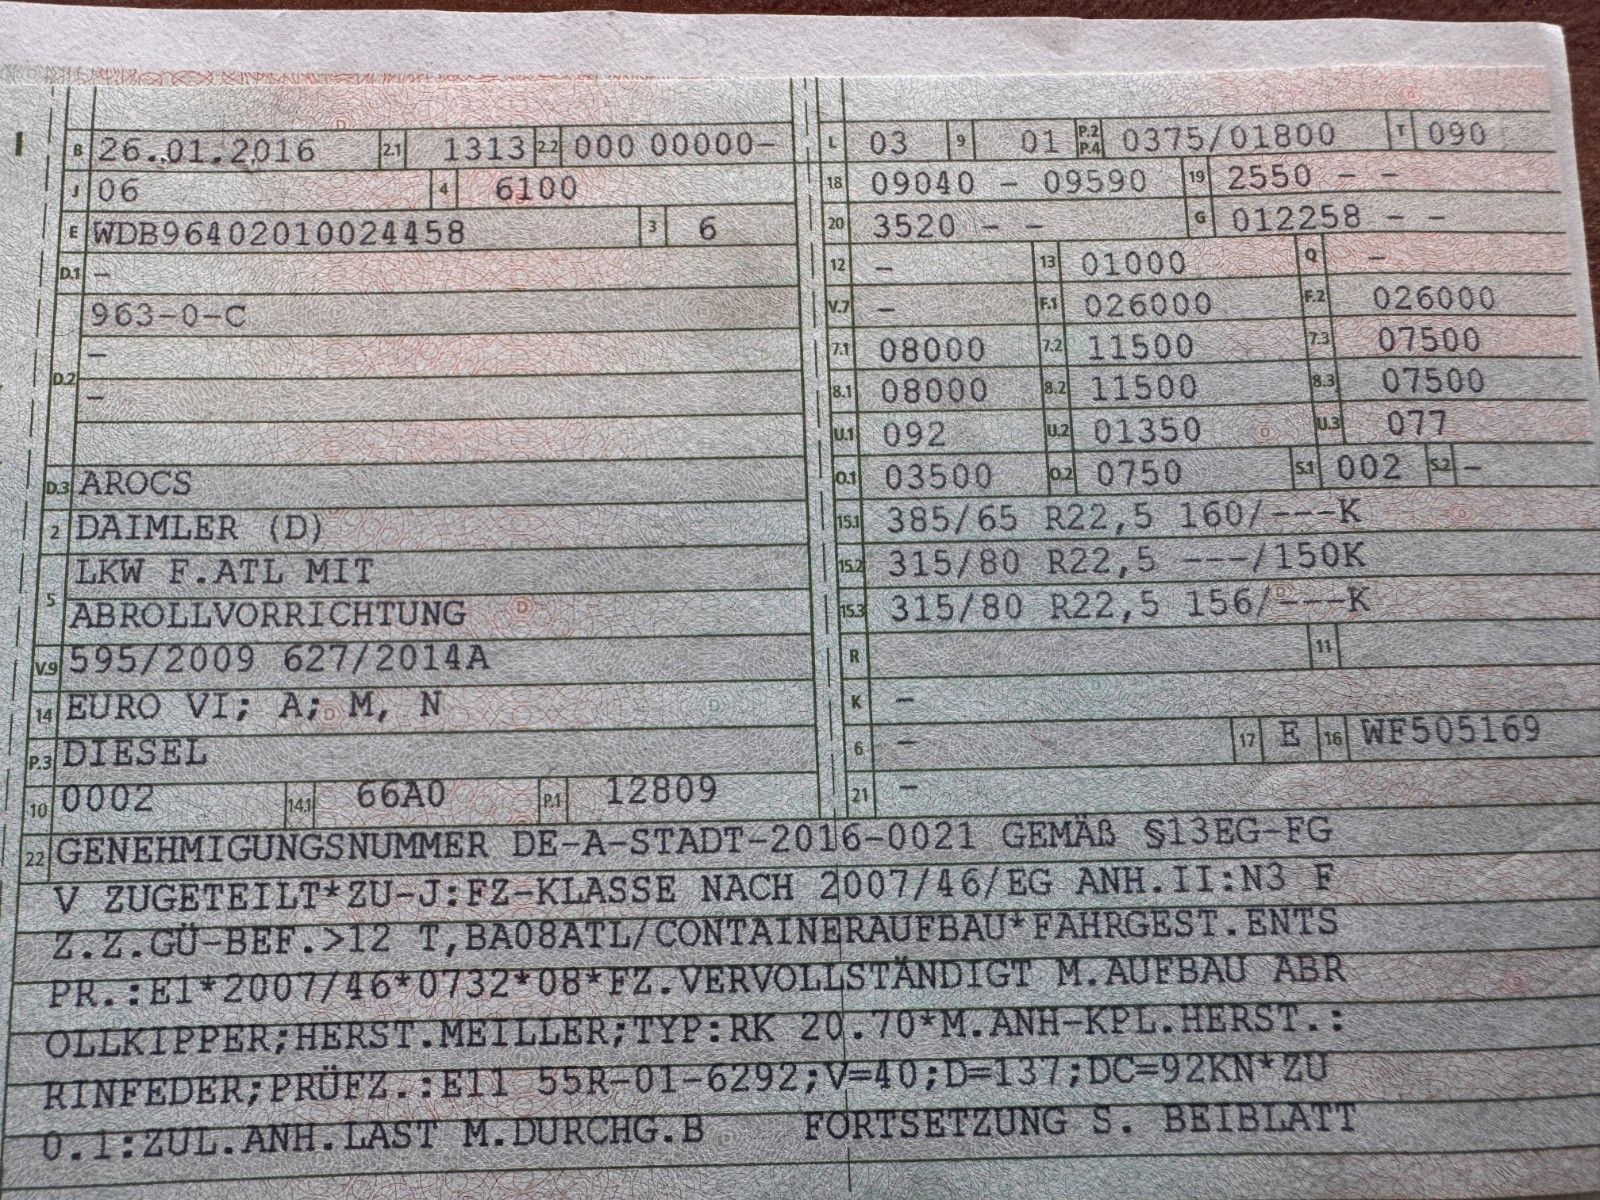 B 26.01.2016 2.1 1313 2.2 000 00000-
J 06 4 6100
E WDB96402010024458 3 6
D.1 -
963-0-C
D.2 -
-
D.3 AROCS
2 DAIMLER (D)
5 LKW F.ATL MIT
ABROLLVORRICHTUNG
V.9 595/2009 627/2014A
14 EURO VI; A; M, N
P.3 DIESEL
10 0002 14.1 66A0 P.1 12809
L 03 9 01 P.2 P.4 0375/01800 T 090
18 09040 - 09590 19 2550 - -
20 3520 - - G 012258 - -
12 - 13 01000 Q -
V.7 - F.1 026000 F.2 026000
7.1 08000 7.2 11500 7.3 07500
8.1 08000 8.2 11500 8.3 07500
U.1 092 U.2 01350 U.3 077
O.1 03500 O.2 0750 S.1 002 S.2 -
15.1 385/65 R22,5 160/---K
15.2 315/80 R22,5 ---/150K
15.3 315/80 R22,5 156/---K
R 11
K -
6 - 17 E 16 WF505169
21 -
22 GENEHMIGUNGSNUMMER DE-A-STADT-2016-0021 GEMÄß §13EG-FG
V ZUGETEILT*ZU-J:FZ-KLASSE NACH 2007/46/EG ANH.II:N3 F
Z.Z.GÜ-BEF.>12 T,BA08ATL/CONTAINERAUFBAU*FAHRGEST.ENTS
PR.:E1*2007/46*0732*08*FZ.VERVOLLSTÄNDIGT M.AUFBAU ABR
OLLKIPPER;HERST.MEILLER;TYP:RK 20.70*M.ANH-KPL.HERST.:
RINFEDER;PRÜFZ.:E11 55R-01-6292;V=40;D=137;DC=92KN*ZU
O.1:ZUL.ANH.LAST M.DURCHG.B FORTSETZUNG S. BEIBLATT